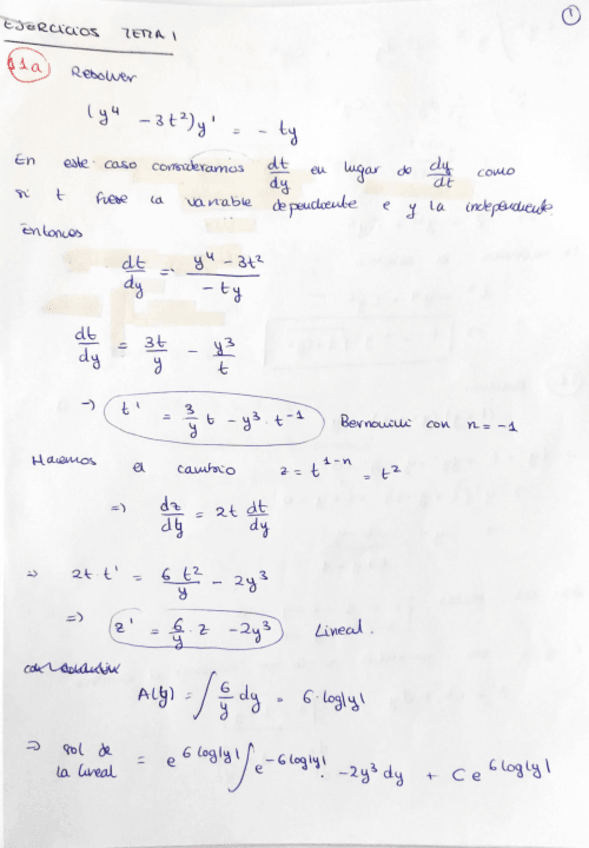 1
EJERCICIOS TEMA 1
11a Resolver
(y⁴ - 3t²)y' = - ty
En este caso consideramos dt/dy en lugar de dy/dt como
si t fuese la variable dependiente e y la independiente.
Entonces
dt/dy = (y⁴ - 3t²)/(- ty)
dt/dy = 3t/y - y³/t
→) t' = 3/y t - y³ · t⁻¹ Bernouilli con n = -1
Hacemos el cambio z = t¹⁻ⁿ = t²
=) dz/dy = 2t dt/dy
⇒ 2t t' = 6t²/y - 2y³
=) z' = 6/y · z - 2y³ Lineal.
A(y) = ∫ 6/y dy = 6·log|y|
⇒ sol de la lineal = e^(6 log|y|) ∫ e^(-6 log|y|) · -2y³ dy + C e^(6 log|y|)